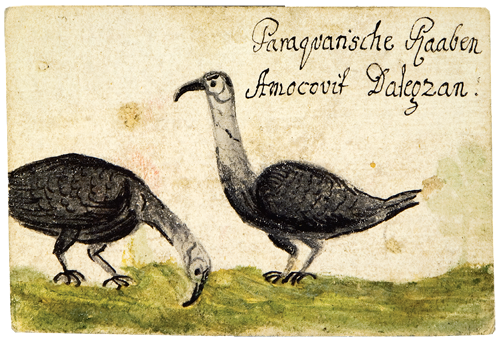 Paraqvarische Raaben
Amocovit Dalegzan.